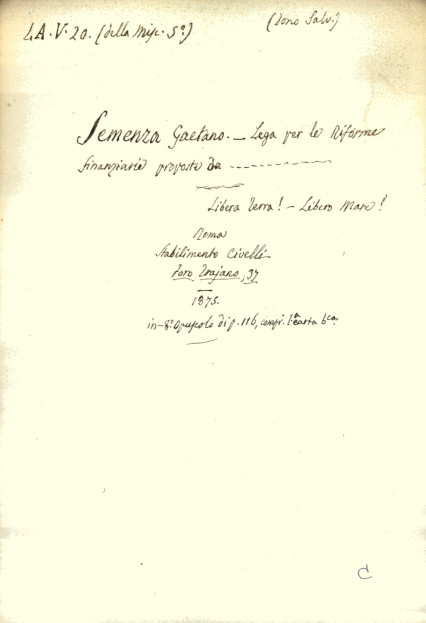 LA. V. 20. (della Misc. 5ª)
(Dono Salv.)
Semenza Gaetano. — Lega per le Riforme
finanziarie proposte da - - - - - - - -
Libera Terra! — Libero Mare!
Roma
Stabilimento Civelli
Foro Trajano, 37
1875.
in-8º Opuscolo di p. 116, compr. l'ª carta bca
C